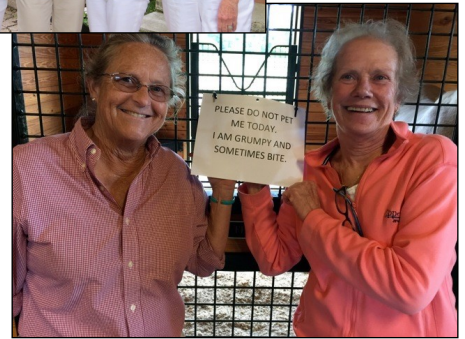 PLEASE DO NOT PET
ME TODAY.
I AM GRUMPY AND
SOMETIMES BITE.